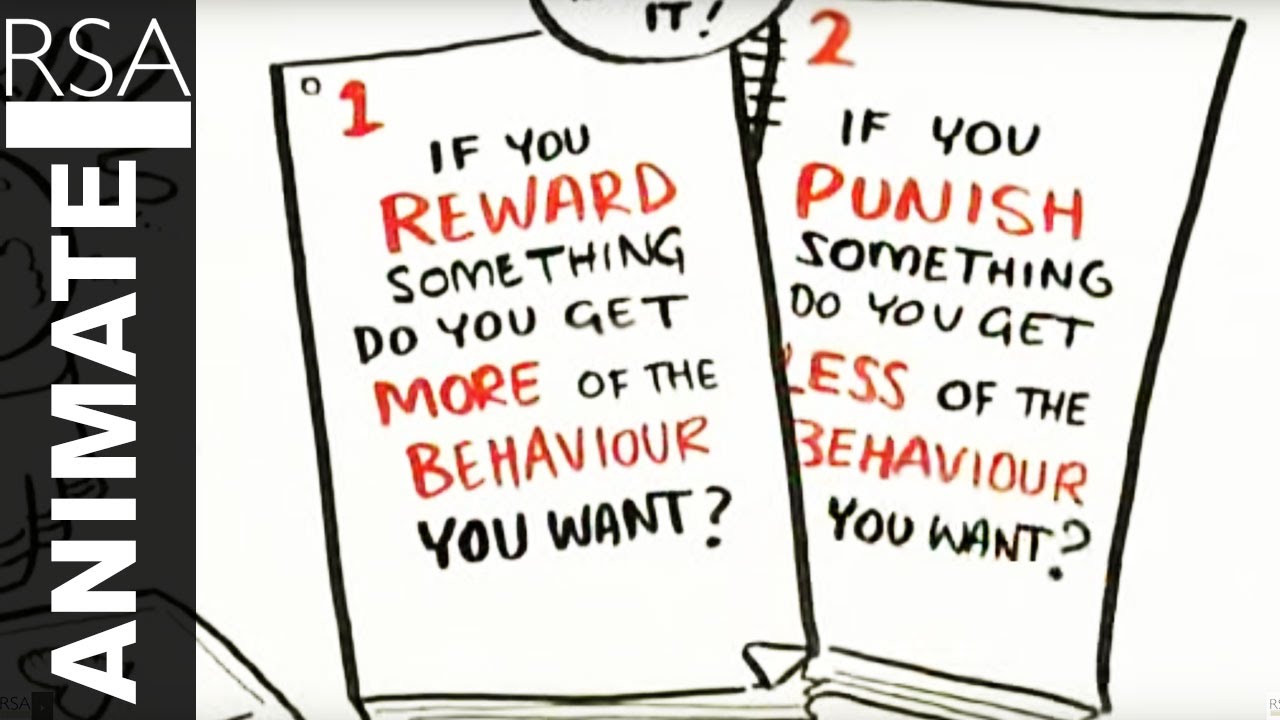 RSA
ANIMATE
IT!
1
IF YOU
REWARD
SOMETHING
DO YOU GET
MORE OF THE
BEHAVIOUR
YOU WANT?
2
IF YOU
PUNISH
SOMETHING
DO YOU GET
LESS OF THE
BEHAVIOUR
YOU WANT?
RSA